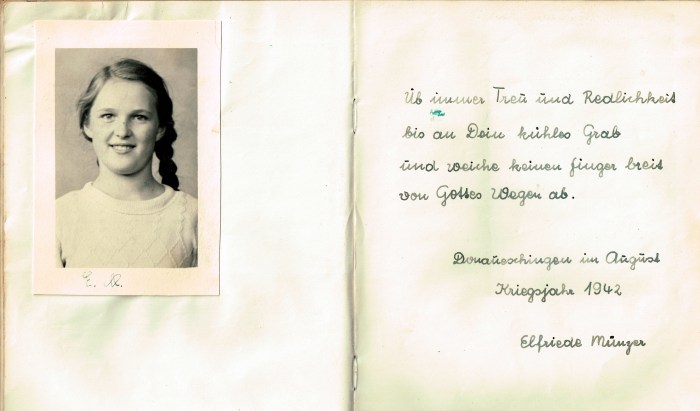 E. M.
Üb immer Treu und Redlichkeit
bis an Dein kühles Grab
und weiche keinen finger breit
von Gottes Wegen ab.
Donaueschingen im August
Kriegsjahr 1942
Elfriede Münzer